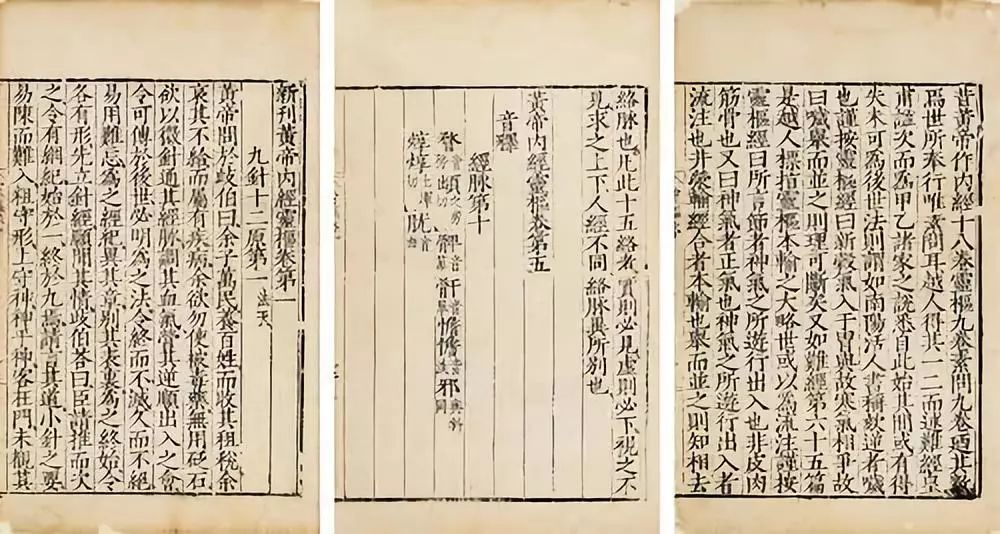 昔黃帝作內經十八卷靈樞九卷素問九卷迺其數
焉世所奉行唯素問耳越人得其一二而述難經皇
甫謐次而為甲乙諸家之說悉自此始其間或有得
失未可為後世法則謂如南陽活人書稱欬逆者噦
也謹按靈樞經曰新穀氣入于胃與故寒氣相爭故
曰噦舉而並之則理可斷矣又如難經第六十五篇
是越人標指靈樞本輸之大略世或以為流注謹按
靈樞經曰所言節者神氣之所遊行出入也非皮肉
筋骨也又曰神氣者正氣也神氣之所遊行出入者
流注也井滎輸經合者本輸也舉而並之則知相去
絡脉也凡此十五絡者實則必見虛則必下視之不
見求之上下人經不同絡脉異所別也
黃帝內經靈樞卷第五
音釋
經脉第十
䪼 骭 憺憺 邪
焞焞 胱
新刊黃帝內經靈樞卷第一
九針十二原第一 法天
黃帝問於歧伯曰余子萬民養百姓而收其租稅余
哀其不給而屬有疾病余欲勿使被毒藥無用砭石
欲以微針通其經脉調其血氣營其逆順出入之會
令可傳於後世必明為之法令終而不滅久而不絕
易用難忘為之經紀異其章別其表裏為之終始令
各有形先立針經願聞其情歧伯荅曰臣請推而次
之令有綱紀始於一終於九焉請言其道小針之要
易陳而難入粗守形上守神神乎神客在門未覩其